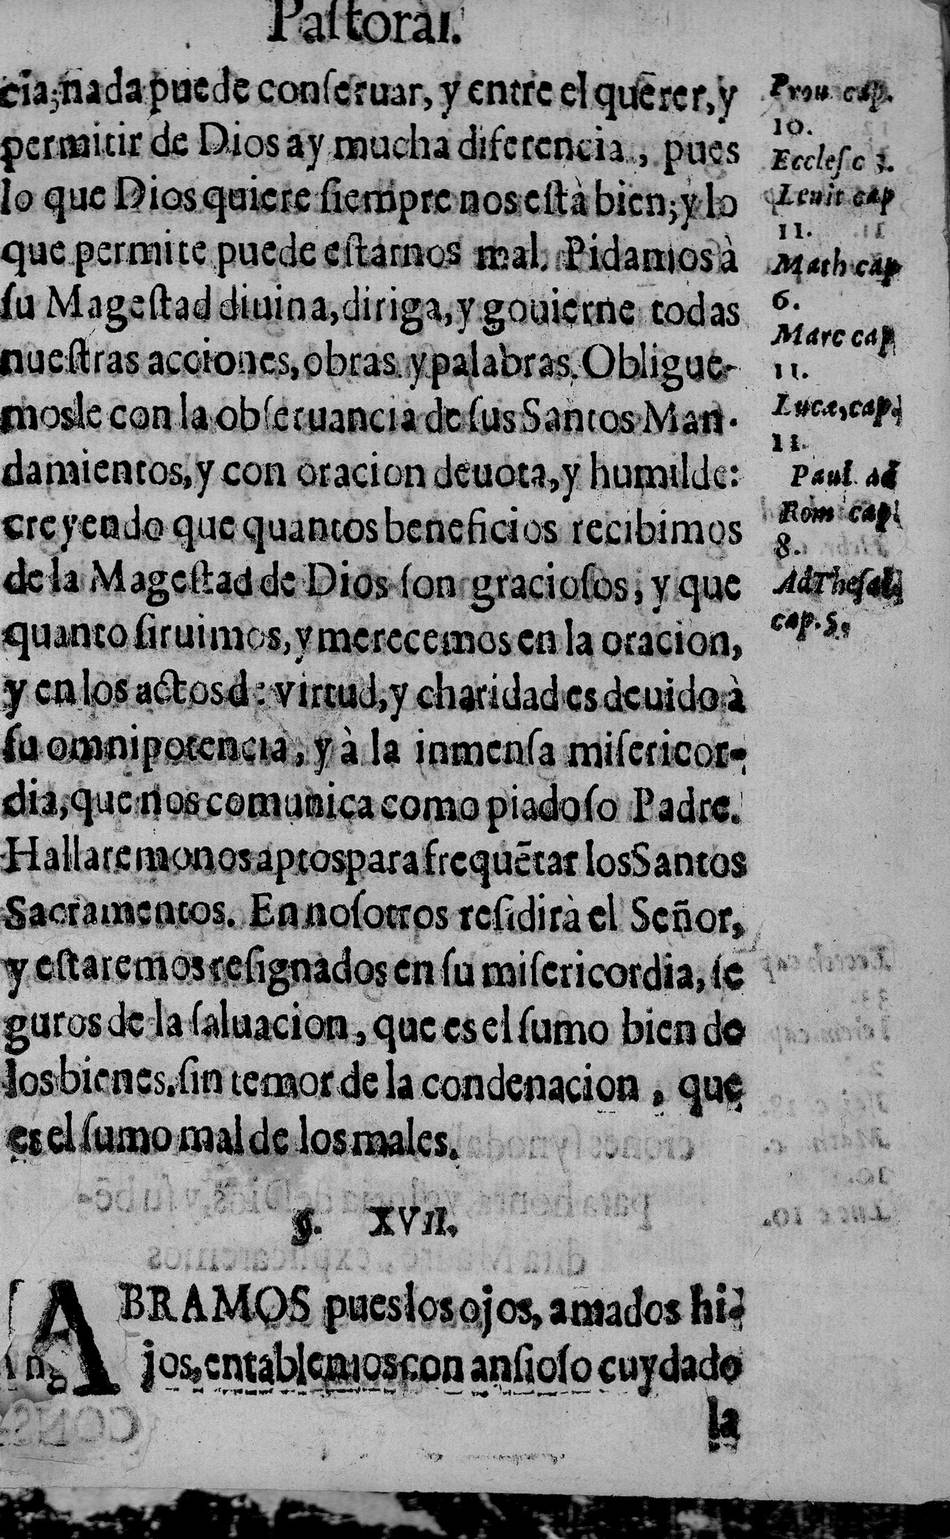 Paſtoral.
cia; nada puede conſeruar, y entre el quērer, y
permitir de Dios ay mucha diferencia, pues
lo que Dios quiere ſiempre nos eſtà bien; y lo
que permite puede eſtarnos mal. Pidamos à
ſu Mageſtad diuina, diriga, y gouierne todas
nueſtras acciones, obras y palabras. Obligue-
mosle con la obſeruancia de ſus Santos Man-
damientos, y con oracion deuota, y humilde:
creyendo que quantos beneficios recibimos
de la Mageſtad de Dios ſon gracioſos, y que
quanto ſiruimos, y merecemos en la oracion,
y en los actos de virtud, y charidad es deuido à
ſu omnipotencia, y à la inmenſa miſericor-
dia, que nos comunica como piadoſo Padre.
Hallaremonos aptos para frequētar los Santos
Sacramentos. En noſotros reſidirà el Señor,
y eſtaremos reſignados en ſu miſericordia, ſe
guros de la ſaluacion, que es el ſumo bien de
los bienes, ſin temor de la condenacion, que
es el ſumo mal de los males.
§. XVII.
ABRAMOS pues los ojos, amados hi-
jos, entablemos con anſioſo cuydado
la
Prou cap.
10.
Eccleſ c 3.
Leuit cap
11.
Math cap
6.
Marc cap
11.
Luca, cap.
11.
Paul. ad
Rom cap.
8.
Ad Theſal.
cap. 5.